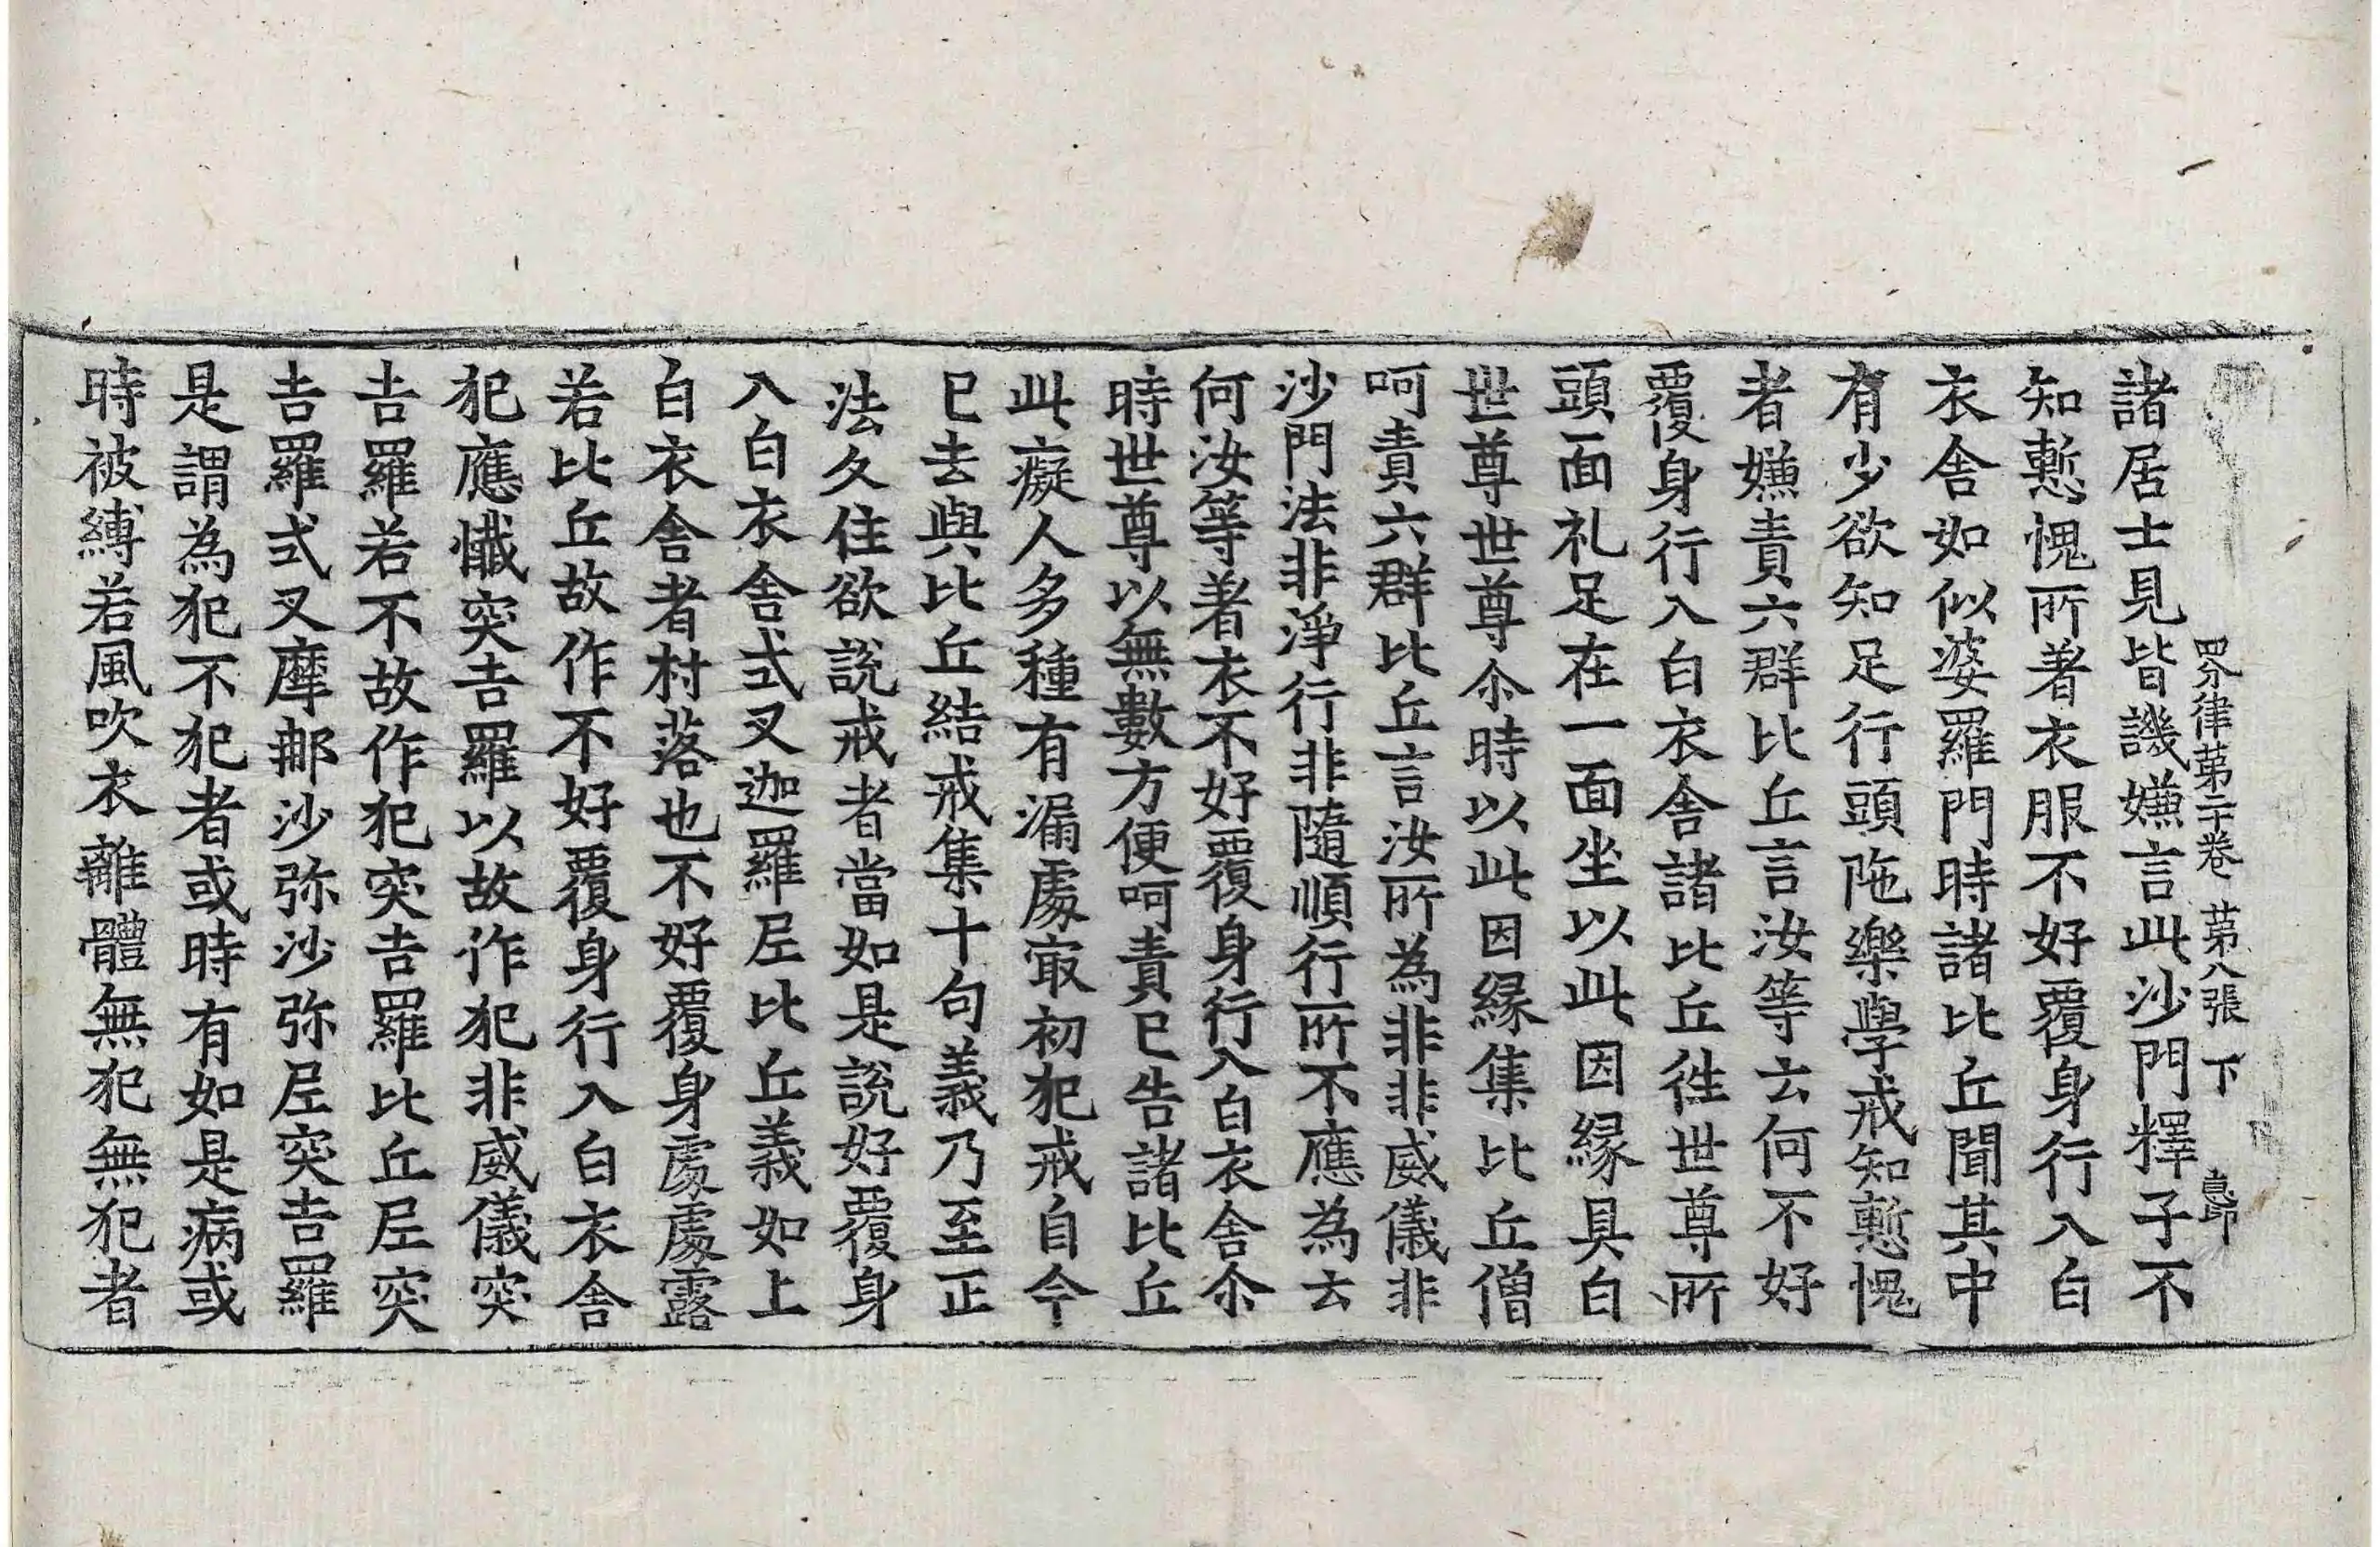 四分律第二十卷 第八張 下
諸居士見皆譏嫌言此沙門釋子不
知慙愧所著衣服不好覆身行入白
衣舍如似婆羅門時諸比丘聞其中
有少欲知足行頭陁樂學戒知慙愧
者嫌責六群比丘言汝等云何不好
覆身行入白衣舍諸比丘徃世尊所
頭面礼足在一面坐以此因緣具白
世尊世尊尒時以此因緣集比丘僧
呵責六群比丘言汝所為非非威儀非
沙門法非淨行非隨順行所不應為云
何汝等著衣不好覆身行入白衣舍尒
時世尊以無數方便呵責已告諸比丘
此癡人多種有漏處㝡初犯戒自今
已去與比丘結戒集十句義乃至正
法久住欲說戒者當如是說好覆身
入白衣舍式叉迦羅尼比丘義如上
白衣舍者村落也不好覆身處處露
若比丘故作不好覆身行入白衣舍
犯應懺突吉羅以故作犯非威儀突
吉羅若不故作犯突吉羅比丘尼突
吉羅式叉摩那沙弥沙弥尼突吉羅
是謂為犯不犯者或時有如是病或
時被縛若風吹衣離體無犯無犯者